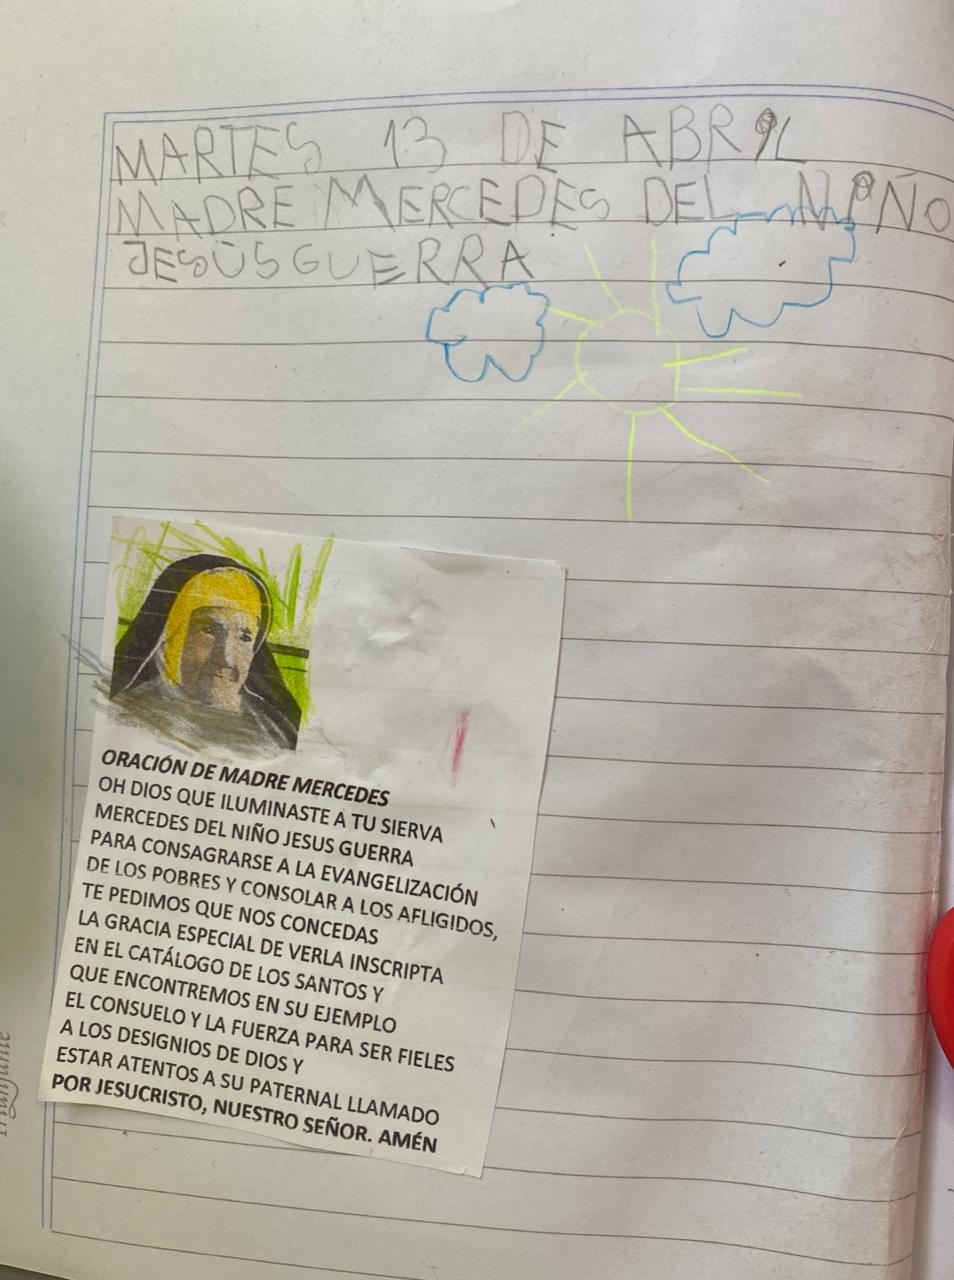 MARTES 13 DE ABRIL
MADRE MERCEDES DEL NIÑO
JESÚS GUERRA
ORACIÓN DE MADRE MERCEDES
OH DIOS QUE ILUMINASTE A TU SIERVA
MERCEDES DEL NIÑO JESUS GUERRA
PARA CONSAGRARSE A LA EVANGELIZACIÓN
DE LOS POBRES Y CONSOLAR A LOS AFLIGIDOS,
TE PEDIMOS QUE NOS CONCEDAS
LA GRACIA ESPECIAL DE VERLA INSCRIPTA
EN EL CATÁLOGO DE LOS SANTOS Y
QUE ENCONTREMOS EN SU EJEMPLO
EL CONSUELO Y LA FUERZA PARA SER FIELES
A LOS DESIGNIOS DE DIOS Y
ESTAR ATENTOS A SU PATERNAL LLAMADO
POR JESUCRISTO, NUESTRO SEÑOR. AMÉN